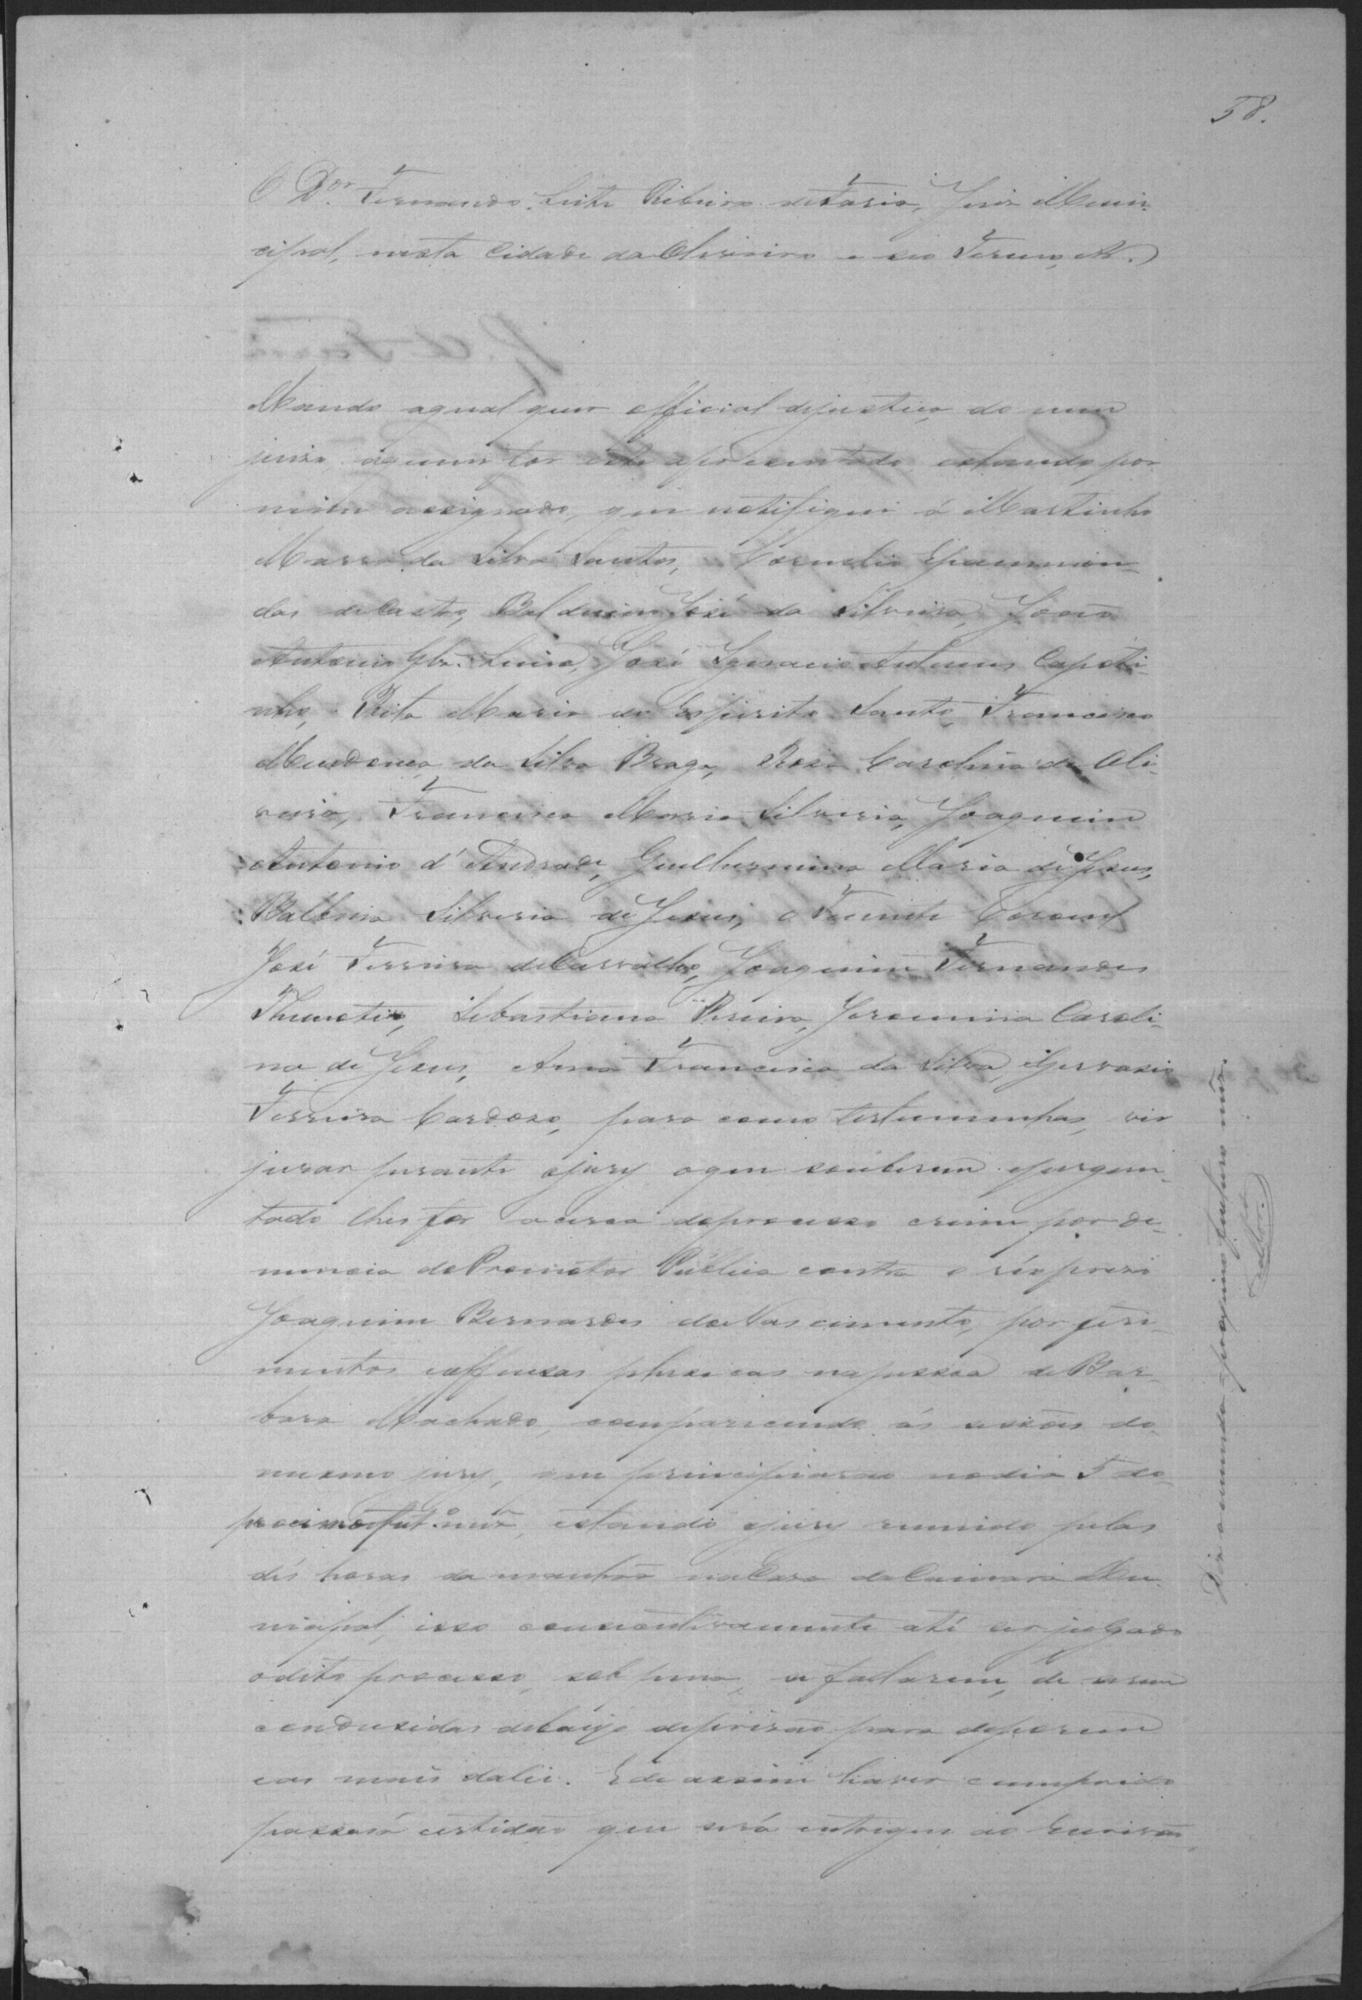 58.
O Dor. Fernando Leite Ribeiro de Faria, Juiz Muni-
cipal, nesta Cidade da Oliveira e seo Termo, &.)
Mando aqual quer official dejustiça do meu
juizo, aquem for este apresentado, estando por
mim assignado, que notifique á Martinho
Marra da Silva Santos, Cornelio Epaminon-
das deCastro, Balduino José da Silveira, João
Antonio Glz. Lima, José Ignacio Antunes Capeti-
nho, Rita Maria do Espirito Santo, Francisco
Mendonça da Silva Braga, Rosa Carolina de Oli-
veira, Francisca Maria Silveria, Joaquim
Antonio d'Andrade, Guilhermina Maria de Jesus,
Balbina Silveria de Jesus, o Tenente Coronel
José Ferreira deCarvalho, Joaquim Fernandes
Sebastiana Pereira, Jeronima Caroli-
na de Jesus, Anna Francisca da Silva, Gervasio
Ferreira Cardoso, para como testemunhas, vir
jurar perante ojury oque souberem epergun-
tado lhes for acerca doprocesso crime por de-
nuncia doPromotor Publico contra o réo preso
Joaquim Bernardes doNascimento, por feri-
mentos eoffensas phisicas napessoa de Bar-
bara Machado, comparecendo ás sessões do
mesmo jury, que principiarão nodia 5 do
proximo fut.o mez, estando ojury reunido pelas
dés horas da manhã naCasa daCamara Mu-
nicipal, isso consecutivamente até ser julgado
odito processo, sob pena, se faltarem, de serem
condusidas debaixo deprisão para deporem
eas mais dalei. E de assim haver cumprido
passará certidão que será entregue ao Escrivão,
Diz a emenda - proximo futuro mez.